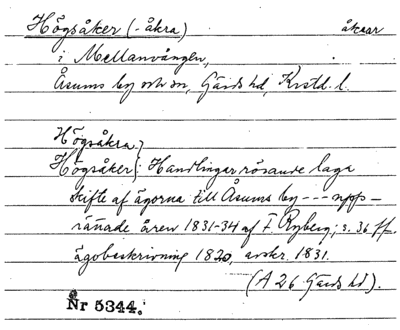 Högsåker (-åkra) åkrar
i Mellanvången,
Åsums by och sn, Gärds hd, Krstd. l.
Högsåkra }
Högsåker }: Handlingar rörande laga
skifte af ägorna till Åsums by --- upp-
rättade åren 1831-34 af F. Ryberg; s. 36 ff.
ägobeskrivning 1820, avskr. 1831.
(A 26 Gärds hd).
Nr 5344.